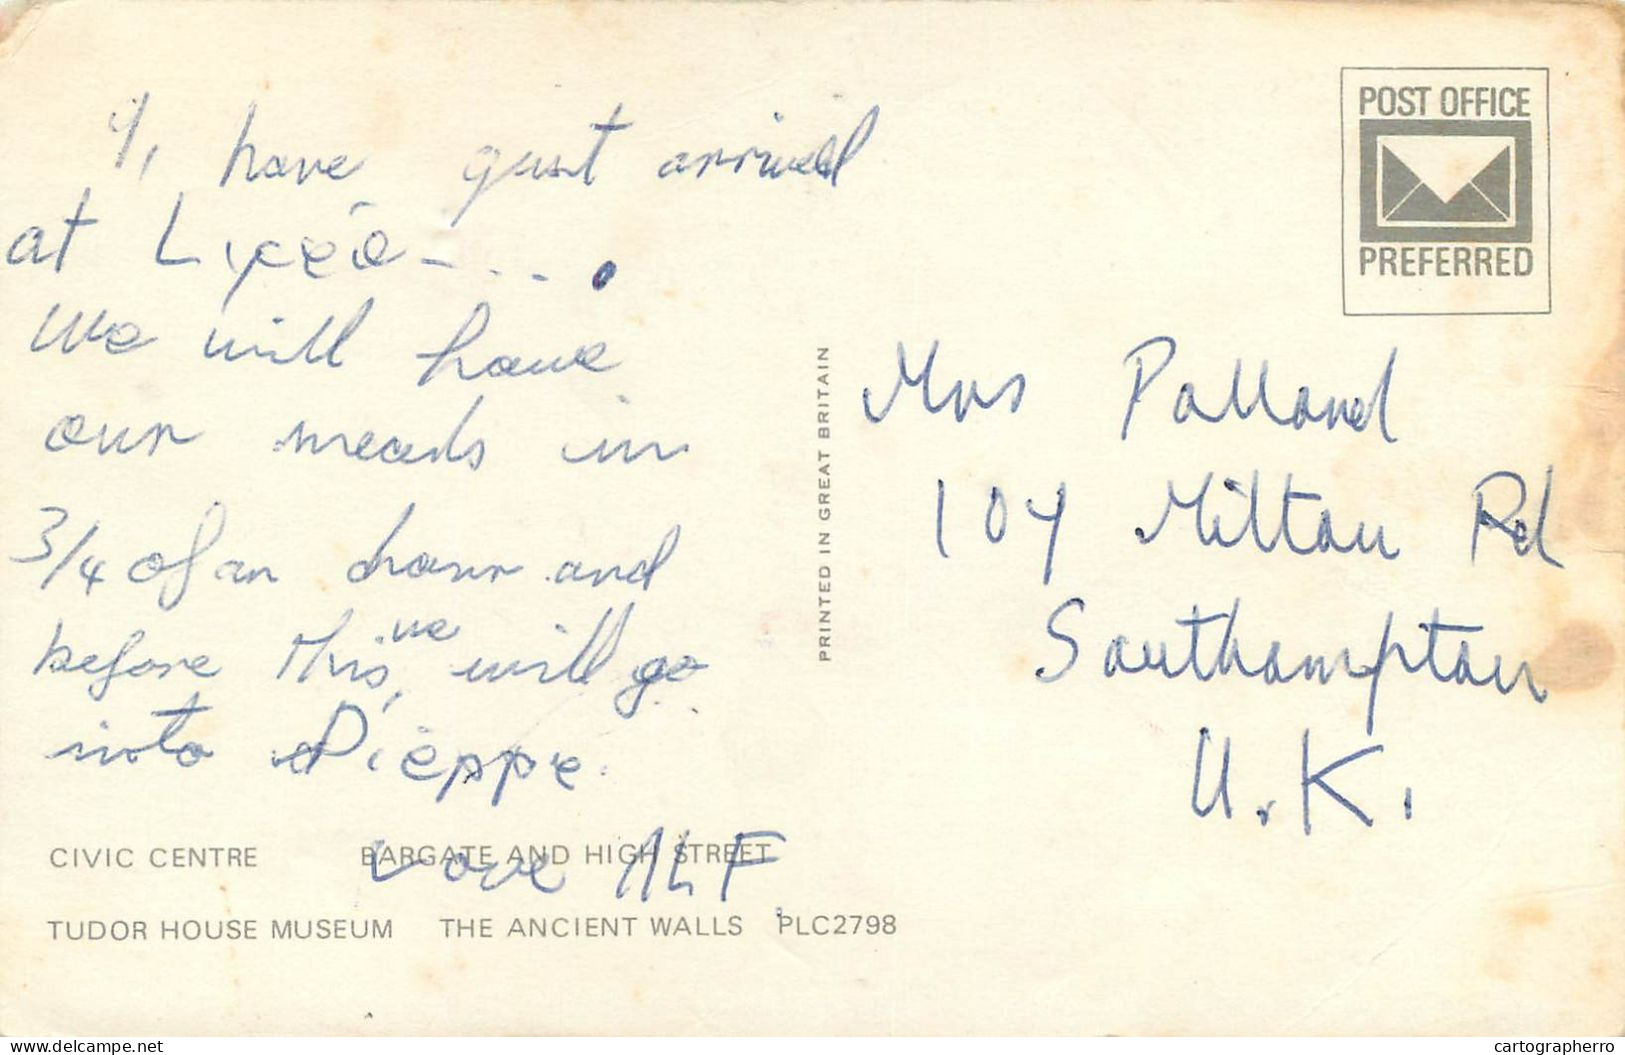 I, have gust arrived
at Lycée - - - .
we will have
our meals in
3/4 of an hour and
before this, we will go
into Dieppe.
Love ALF
POST OFFICE
PREFERRED
Mrs Pollard
104 Milton Rd
Southampton
U.K.
PRINTED IN GREAT BRITAIN
CIVIC CENTRE BARGATE AND HIGH STREET
TUDOR HOUSE MUSEUM THE ANCIENT WALLS PLC2798
www.delcampe.net
cartographerro